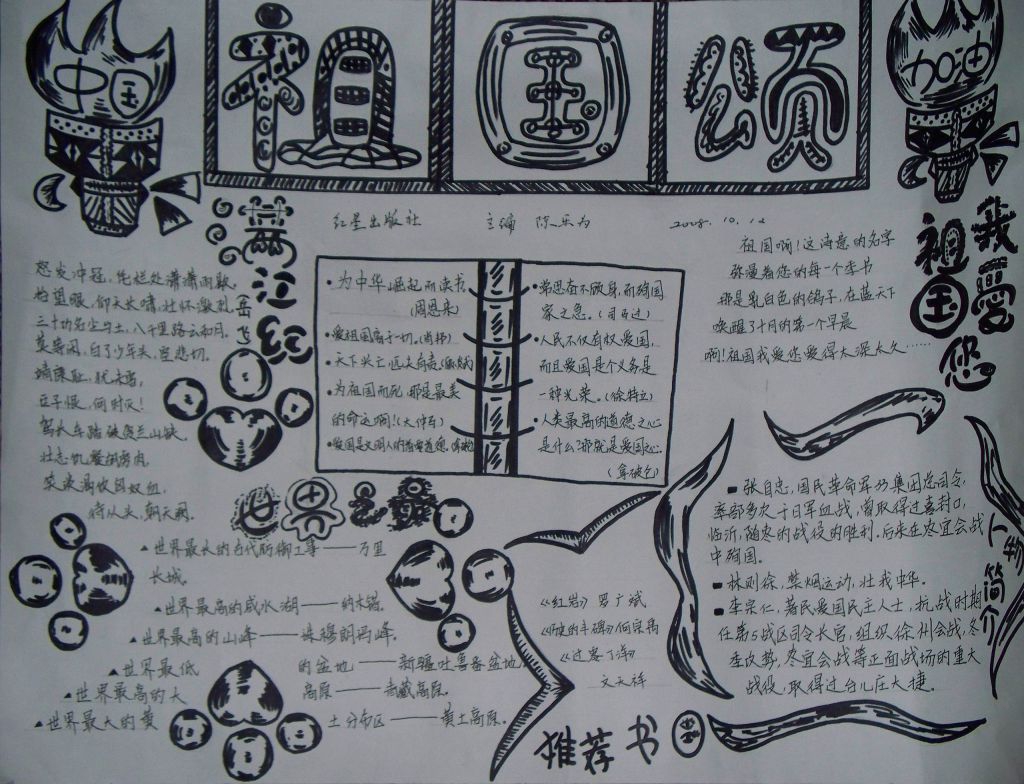 中国
祖国颂
加油
红星出版社 主编 陈乐为 2008.10.12
满江红
岳飞
怒发冲冠,凭栏处潇潇雨歇,
抬望眼,仰天长啸,壮怀激烈。
三十功名尘与土,八千里路云和月。
莫等闲,白了少年头,空悲切。
靖康耻,犹未雪,
臣子恨,何时灭!
驾长车踏破贺兰山缺。
壮志饥餐胡虏肉,
笑谈渴饮匈奴血,
待从头,朝天阙。
·为中华崛起而读书
(周恩来)
·爱祖国高于一切。(肖邦)
·天下兴亡,匹夫有责。(顾炎武)
·为祖国而死,那是最美
的命运啊!(大仲马)
·爱国是文明人的首要道德。(拿破仑)
·常思奋不顾身,而殉国
家之急。(司马迁)
·人民不仅有权爱国,
而且爱国是个义务是
一种光荣。(徐特立)
·人类最高的道德之心
是什么?那就是爱国心。
(拿破仑)
祖国啊!这满意的名字
弥漫着您的每一个季节
那是乳白色的鸽子,在蓝天下
唤醒了十月的第一个早晨
啊!祖国我爱您爱得太深太久……
我爱您
祖国
世界之最
▲世界最长的古代防御工事——万里
长城。
▲世界最高的咸水湖——纳木错。
▲世界最高的山峰——珠穆朗玛峰。
▲世界最低的盆地——新疆吐鲁番盆地
▲世界最高的大高原——青藏高原。
▲世界最大的黄土分布区——黄土高原。
《红岩》罗广斌
《历史的丰碑》何宗禹
《过零丁洋》
文天祥
推荐书
人物简介
张自忠,国民革命军33集团总司令,
率部多次于日军血战,曾取得过喜封口,
临沂,随枣的战役的胜利,后来在枣宜会战
中殉国。
林则徐,禁烟运动,壮我中华。
李宗仁,著民爱国民主人士,抗战时期
任第5战区司令长官,组织徐州会战,冬
季攻势,枣宜会战等正面战场的重大
战役,取得过台儿庄大捷。